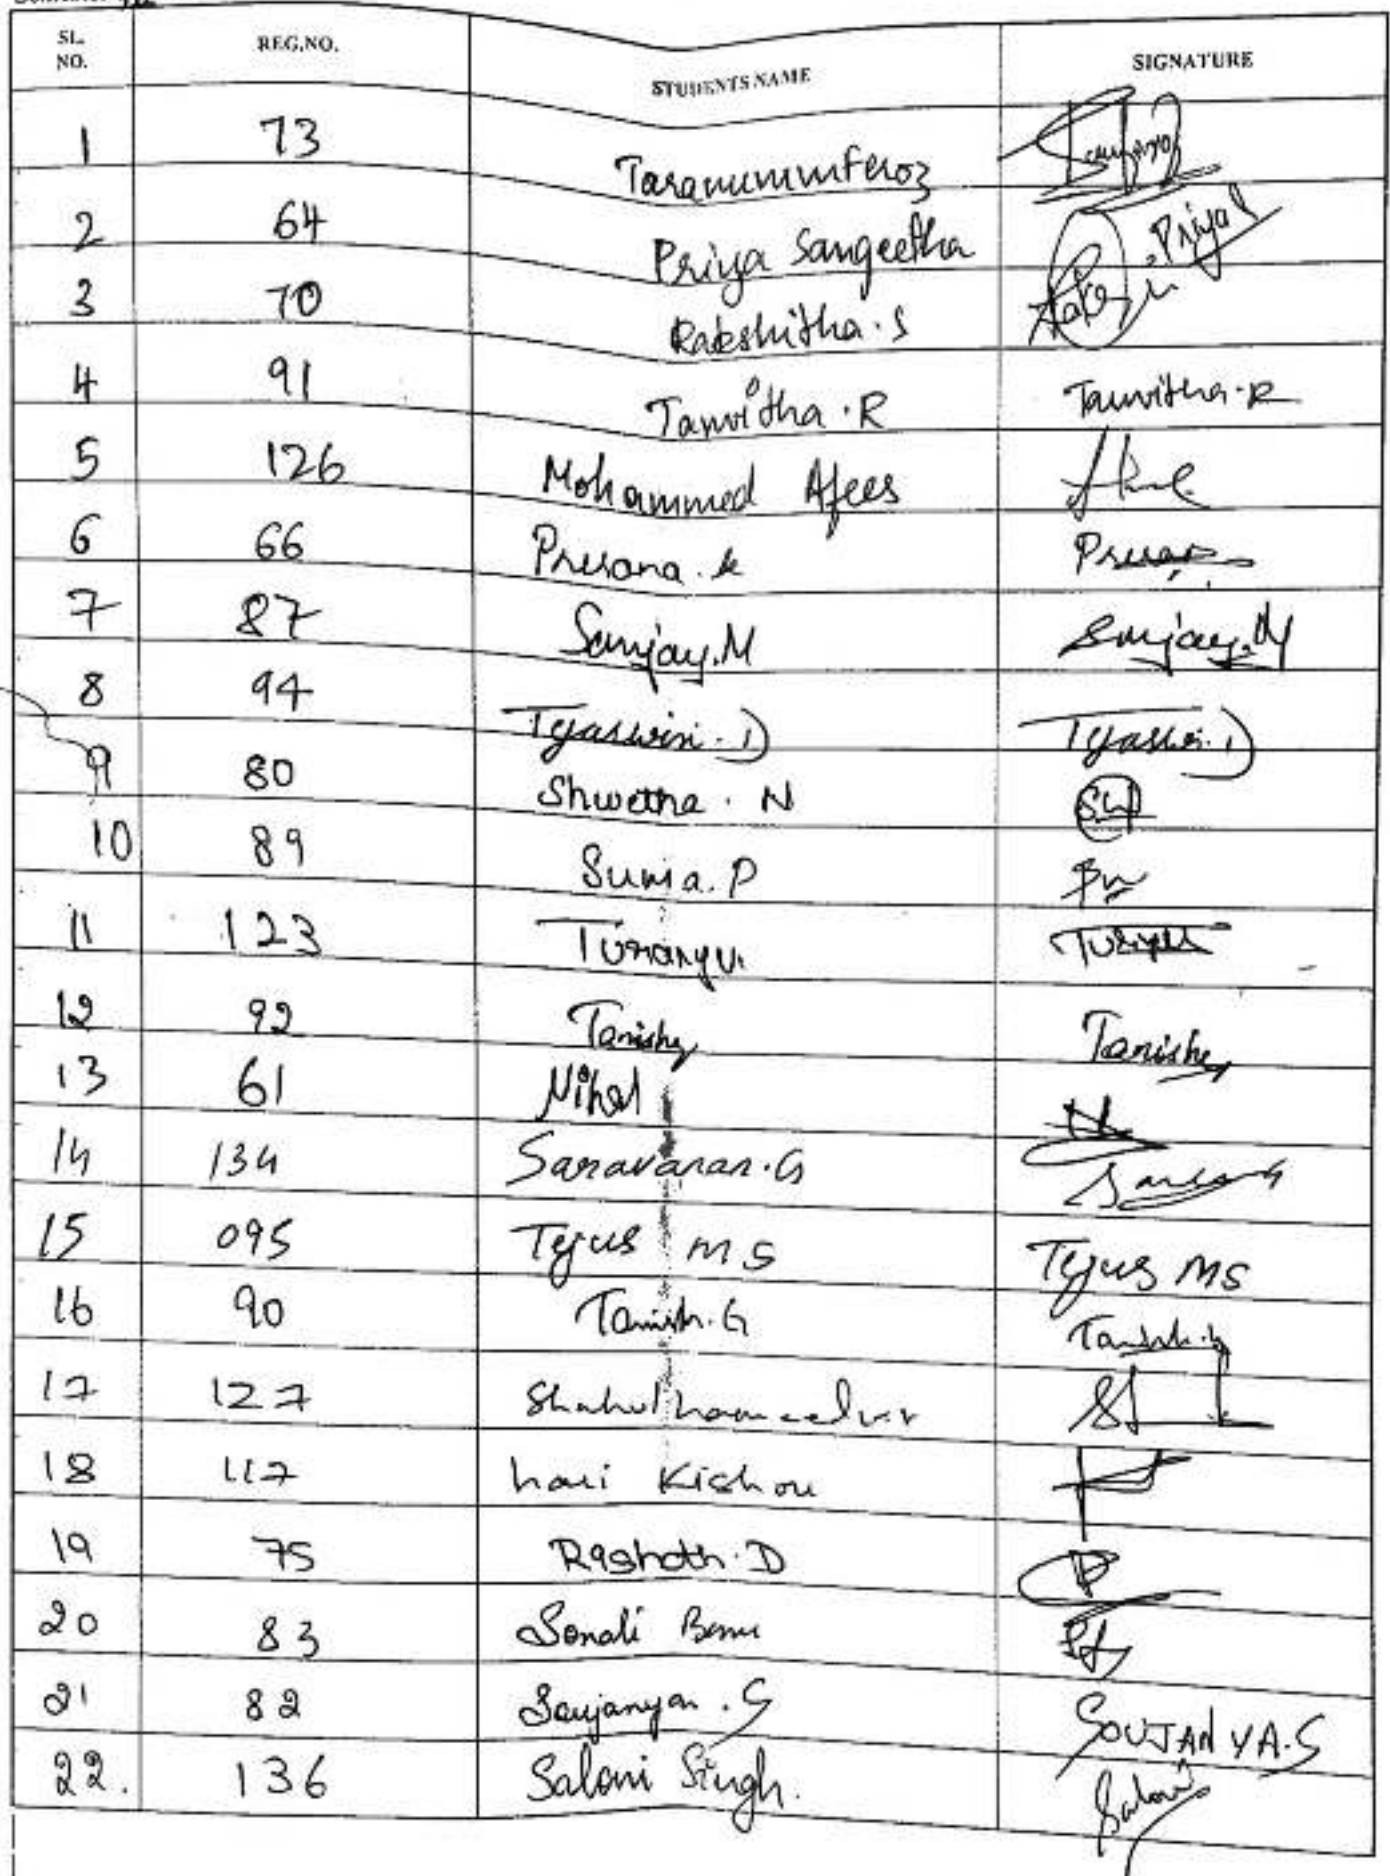 SL. NO. REG.NO. STUDENTS NAME SIGNATURE
1 73 Taranummferoz
2 64 Priya Sangeetha Priya S
3 70 Rakshitha.S
4 91 Tanvitha.R Tanvitha.R
5 126 Mohammed Afees
6 66 Prerana.k
7 87 Sanjay.M Sanjay.M
8 94 Tejaswini.D
9 80 Shwetha.N
10 89
11 123
12 92 Tanisha Tanisha
13 61 Nihal
14 134 Saravanan.G
15 095 Tejus MS Tejus MS
16 90 Tanish.G Tanish.G
17 127
18 117 hari Kishore
19 75
20 83 Sonali
21 82 Soujanya.S SOUJANYA.S
22. 136 Saloni Singh. Saloni